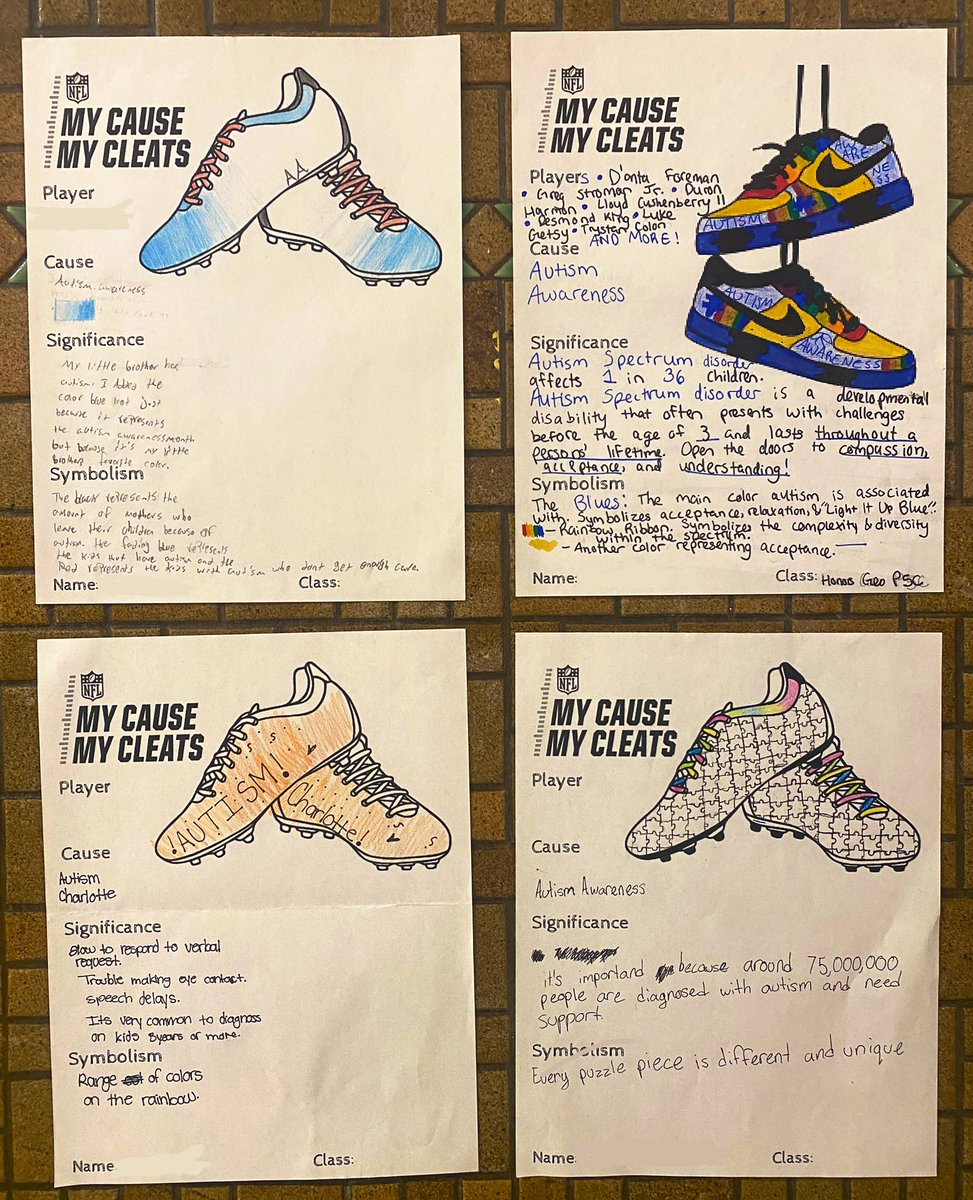 NFL
MY CAUSE
MY CLEATS
Player
Cause
Autism awareness
Significance
My little brother has
autism. I added the
color blue not just
because it represents
the autism awareness month
but because it's my little
brothers favorite color.
Symbolism
The black represents the
amount of mothers who
leave their children because of
autism. the fading blue represents
the kids that have autism and the
Red represents the kids with autism who dont get enough care.
Name:
Class:
AA
NFL
MY CAUSE
MY CLEATS
Players • D'onta Foreman
• Greg Stroman Jr. • Duron
Harmon • Lloyd Cushenberry II
• Desmond King • Luke
Getsy • Trystan Colon
AND MORE!
Cause
Autism
Awareness
Significance
Autism Spectrum disorder
affects 1 in 36 children.
Autism Spectrum disorder is a developmental
disability that often presents with challenges
before the age of 3 and lasts throughout a
persons' lifetime. Open the doors to compassion,
acceptance, and understanding!
Symbolism
The Blues: The main color autism is associated
with. Symbolizes acceptance, relaxation, & "Light It Up Blue".
- Rainbow Ribbon. Symbolizes the complexity & diversity
within the spectrum.
- Another color representing acceptance.
Name:
Class: Honors Geo P5
AW
ARE
NE
SS
AUTISM
AUTISM
AWARENESS
NFL
MY CAUSE
MY CLEATS
Player
Cause
Autism
Charlotte
Significance
Slow to respond to verbal
request.
Trouble making eye contact.
speech delays.
Its very common to diagnoss
on kids 8years or more.
Symbolism
Range of colors
on the rainbow.
Name
Class:
AUTISM!
Charlotte!
NFL
MY CAUSE
MY CLEATS
Player
Cause
Autism Awareness
Significance
it's importand because around 75,000,000
people are diagnosed with autism and need
support.
Symbolism
Every puzzle piece is different and unique
Name:
Class: